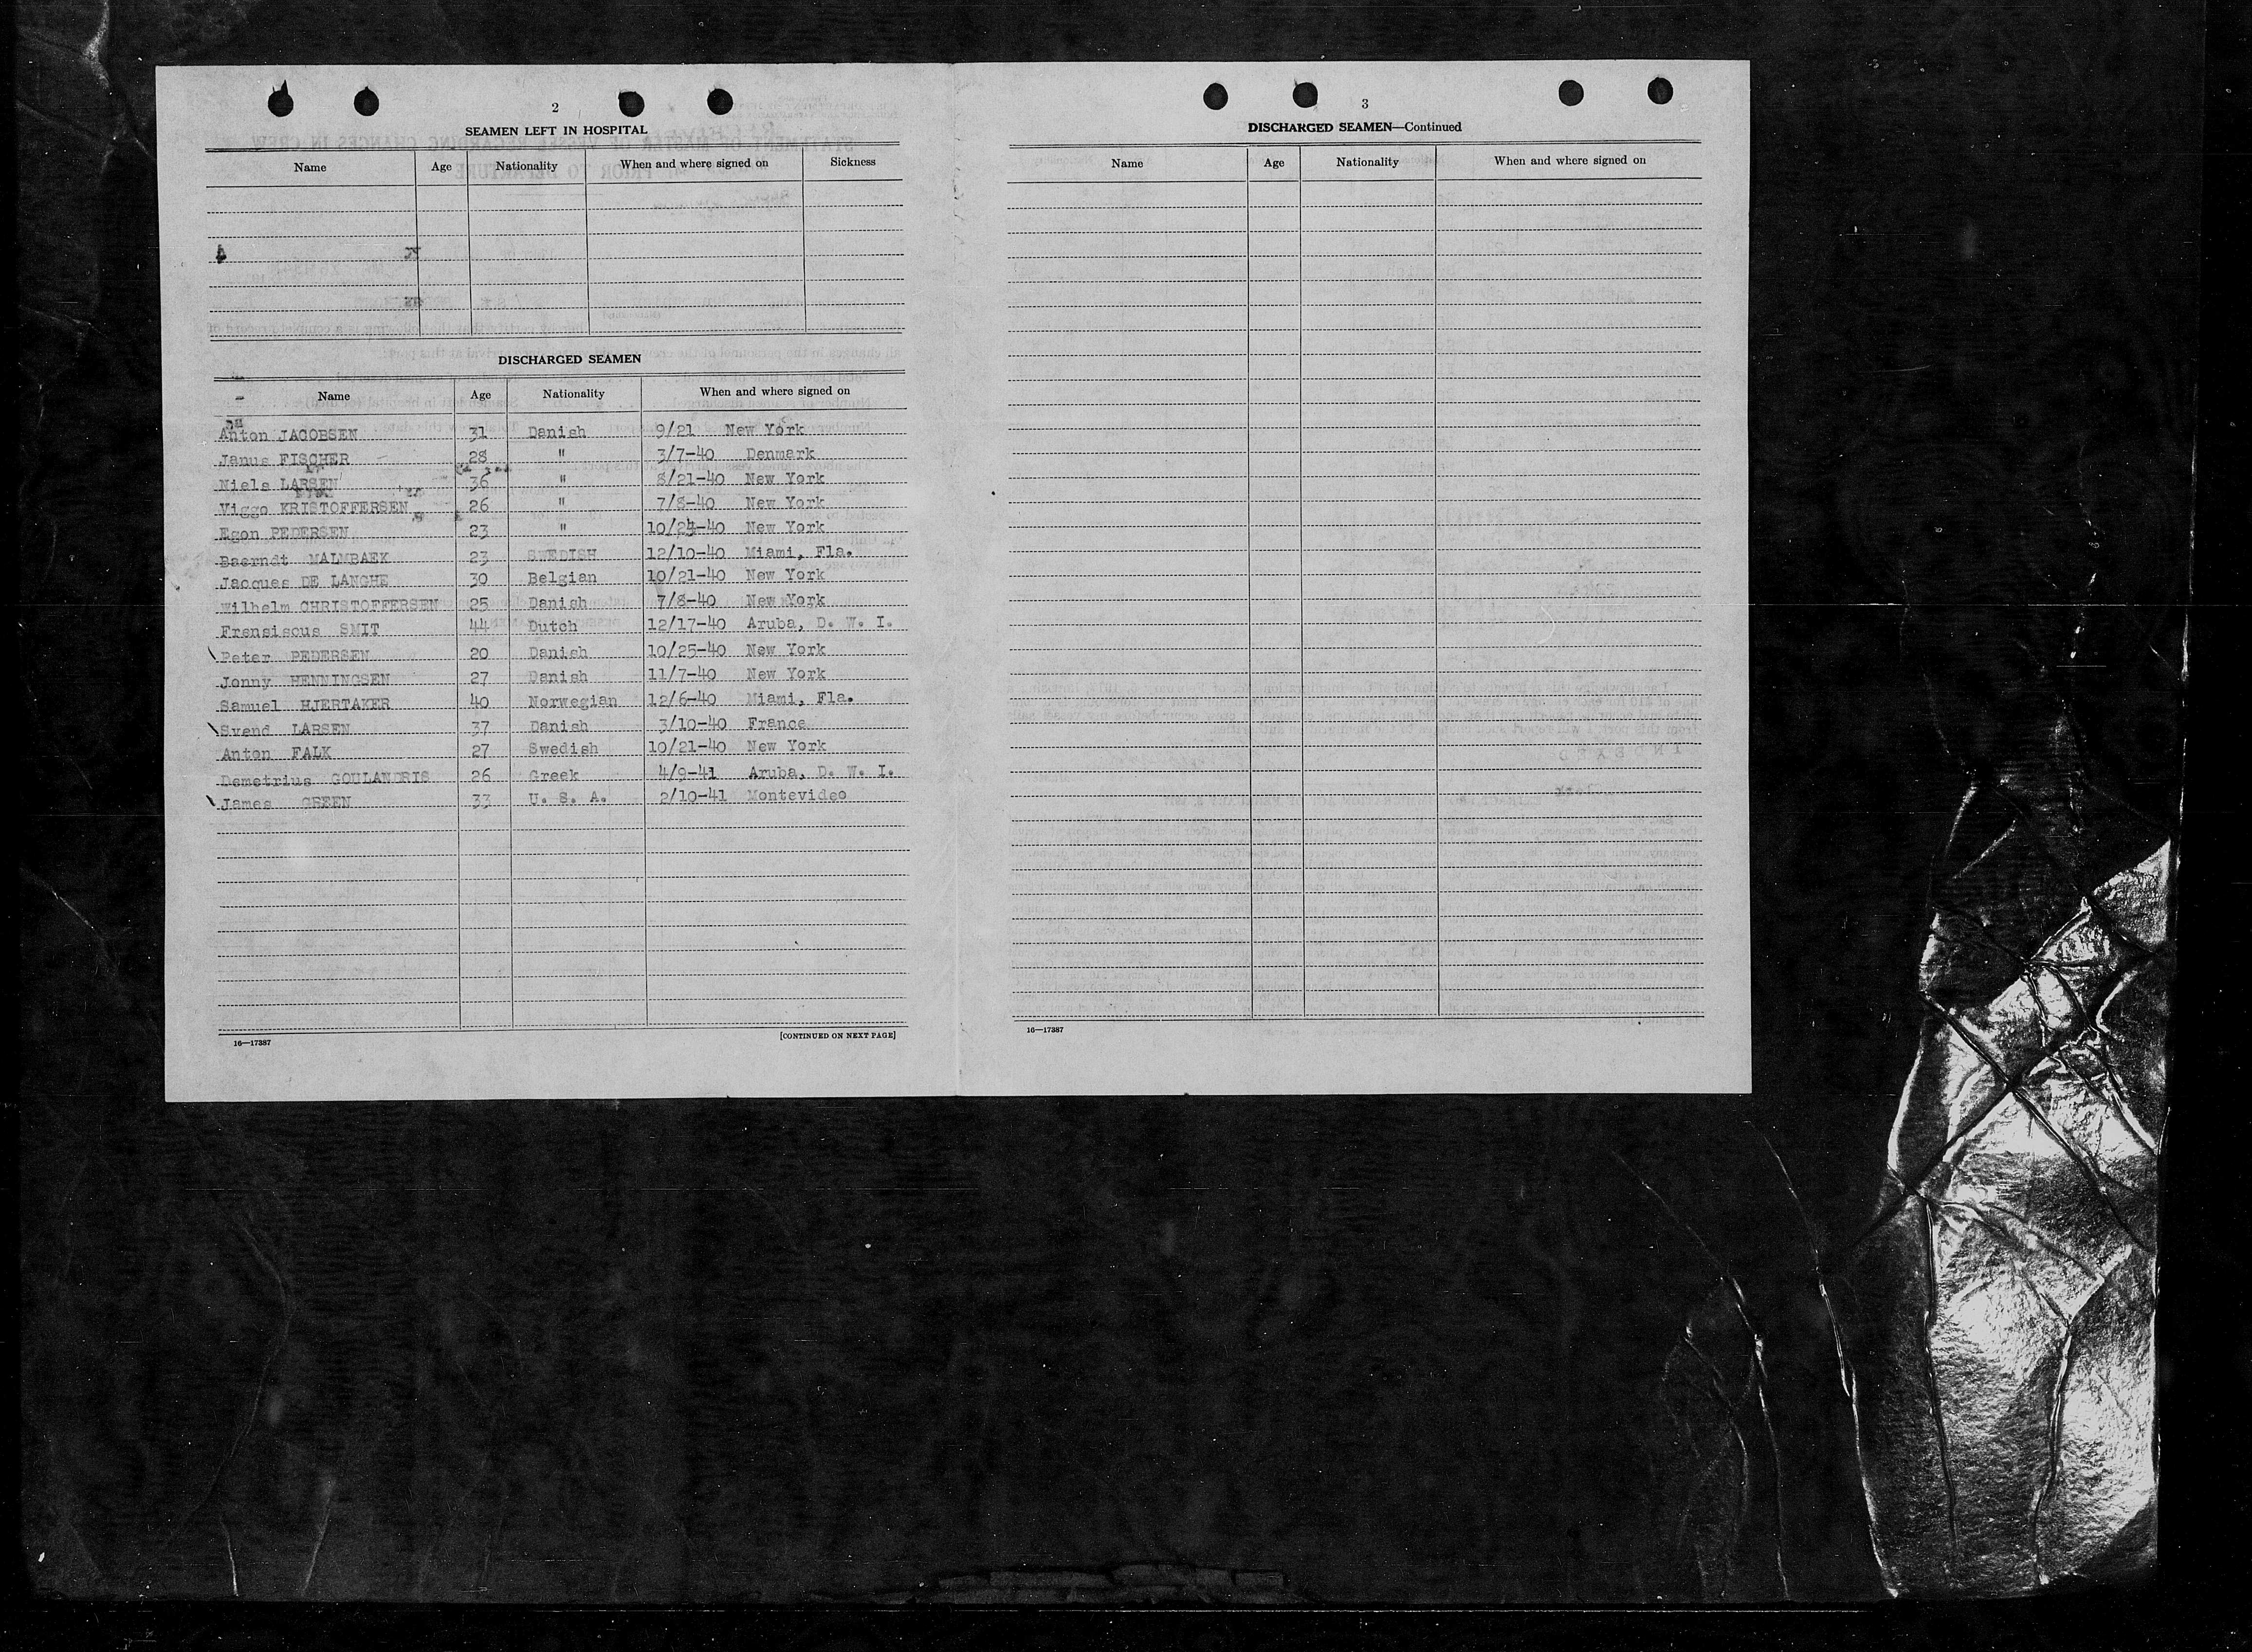 2
SEAMEN LEFT IN HOSPITAL
Name Age Nationality When and where signed on Sickness
DISCHARGED SEAMEN
Name Age Nationality When and where signed on
Anton JACOBSEN 31 Danish 9/21 New York
Janus FISCHER 28 " 3/7-40 Denmark
Niels LARSEN 36 " 8/21-40 New York
Viggo KRISTOFFERSEN 26 " 7/8-40 New York
Egon PEDERSEN 23 " 10/24-40 New York
Baerndt MALMBAEK 23 SWEDISH 12/10-40 Miami, Fla.
Jacques DE LANGHE 30 Belgian 10/21-40 New York
Wilhelm CHRISTOFFERSEN 25 Danish 7/8-40 New York
Fransiscus SMIT 44 Dutch 12/17-40 Aruba, D. W. I.
Peter PEDERSEN 20 Danish 10/25-40 New York
Jonny HENNINGSEN 27 Danish 11/7-40 New York
Samuel HJERTAKER 40 Norwegian 12/6-40 Miami, Fla.
Svend LARSEN 37 Danish 3/10-40 France
Anton FALK 27 Swedish 10/21-40 New York
Demetrius GOULANDRIS 26 Greek 4/9-41 Aruba, D. W. I.
James GREEN 33 U. S. A. 2/10-41 Montevideo
16—17387 [CONTINUED ON NEXT PAGE]
3
DISCHARGED SEAMEN—Continued
Name Age Nationality When and where signed on
16—17387